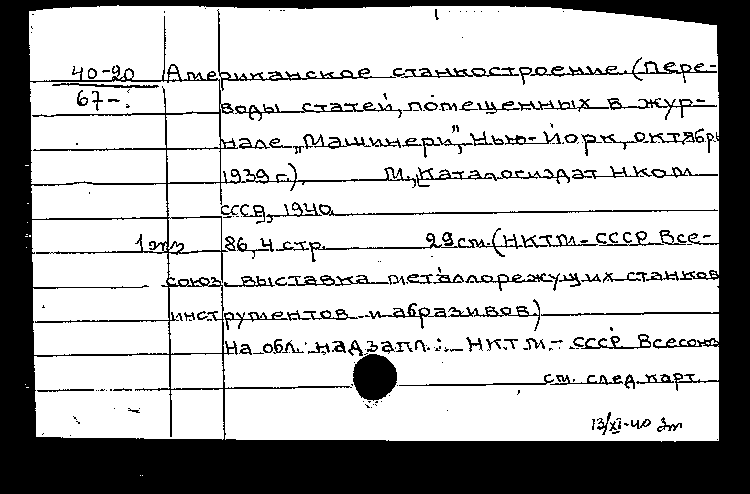 40-20 Американское станкостроение. (Пере-
67-: воды статей, помещенных в жур-
нале „Машинери", Нью-Йорк, октябрь
1939 г.), М., Каталогиздат НКОМ
СССР, 1940.
1 экз 86, 4 стр. 29 см. (НКТМ-СССР Все-
союз. выставка металлорежущих станков
инструментов и абразивов.)
На обл.: надзапл.: НКТМ.- СССР Всесоюз
см. след. карт.
13/XI-40 Зт